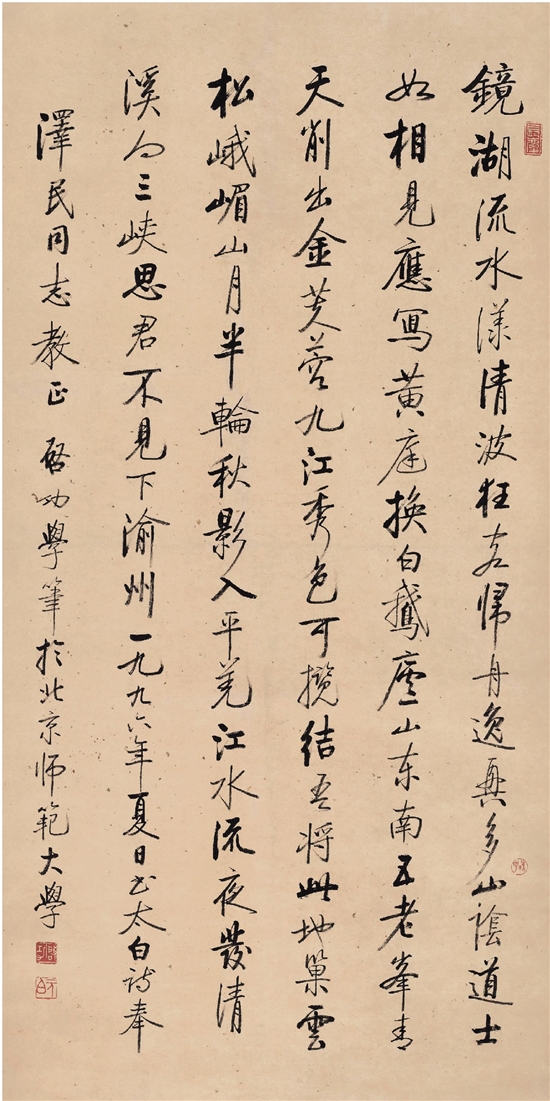 鏡湖流水漾清波狂客歸舟逸興多山陰道士
如相見應寫黃庭換白鵝廬山東南五老峯青
天削出金芙蓉九江秀色可攬結吾將此地巢雲
松峨嵋山月半輪秋影入平羌江水流夜發清
溪向三峽思君不見下渝州一九九六年夏日書太白詩奉
澤民同志教正 啓功學筆於北京師範大學